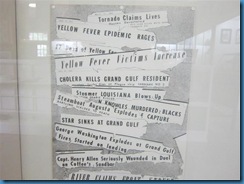 Tornado Claims Lives
YELLOW FEVER EPIDEMIC RAGES
17 Dead of Yellow Fever
Yellow Fever Victims Increase
CHOLERA KILLS GRAND GULF RESIDENT
Steamer LOUISIANA Blows Up
Steamboat Augusta Explodes
KNOWLES MURDERED; BLACKS
CAPTURE
STAR SINKS AT GRAND GULF
George Washington Explodes at Grand Gulf
Fire; Started on landing
Capt. Henry Allen Seriously Wounded in Duel
on Coffee's Sandbar
RIVER CLAIMS FIRST STREET